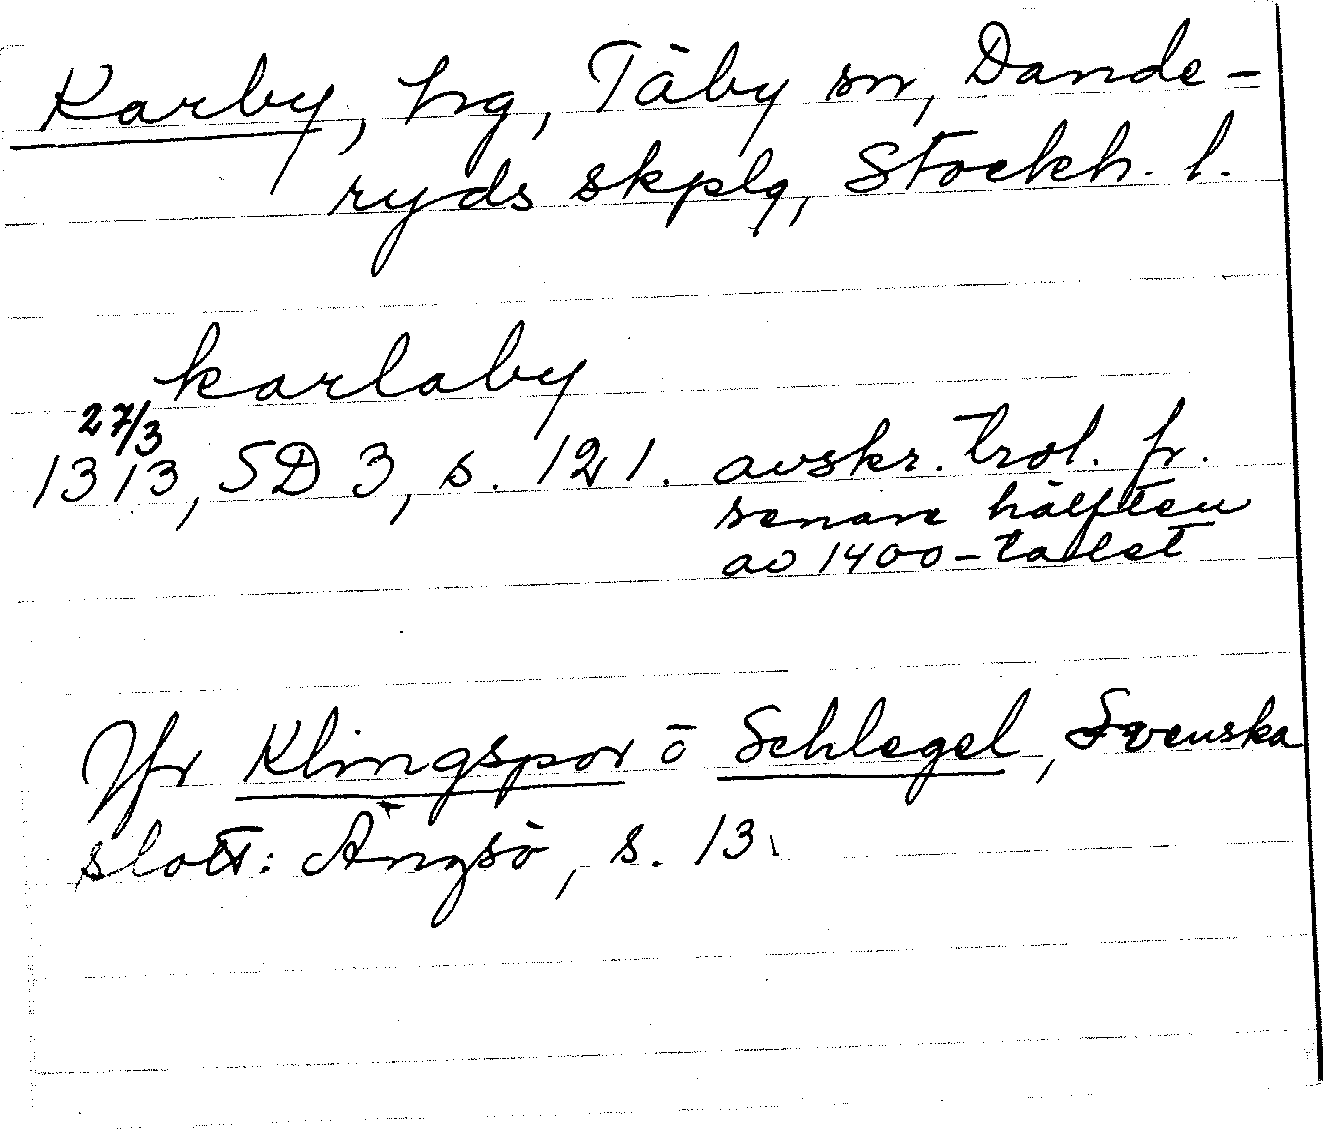 Karby, hg, Täby sn, Dande-
ryds skplg, Stockh. l.
karlaby
27/3
1313, SD 3, s. 121. avskr. trol. fr.
senare hälften
av 1400-talet
Jfr Klingspor o Schlegel, Svenska
slott: Ängsö, s. 13.